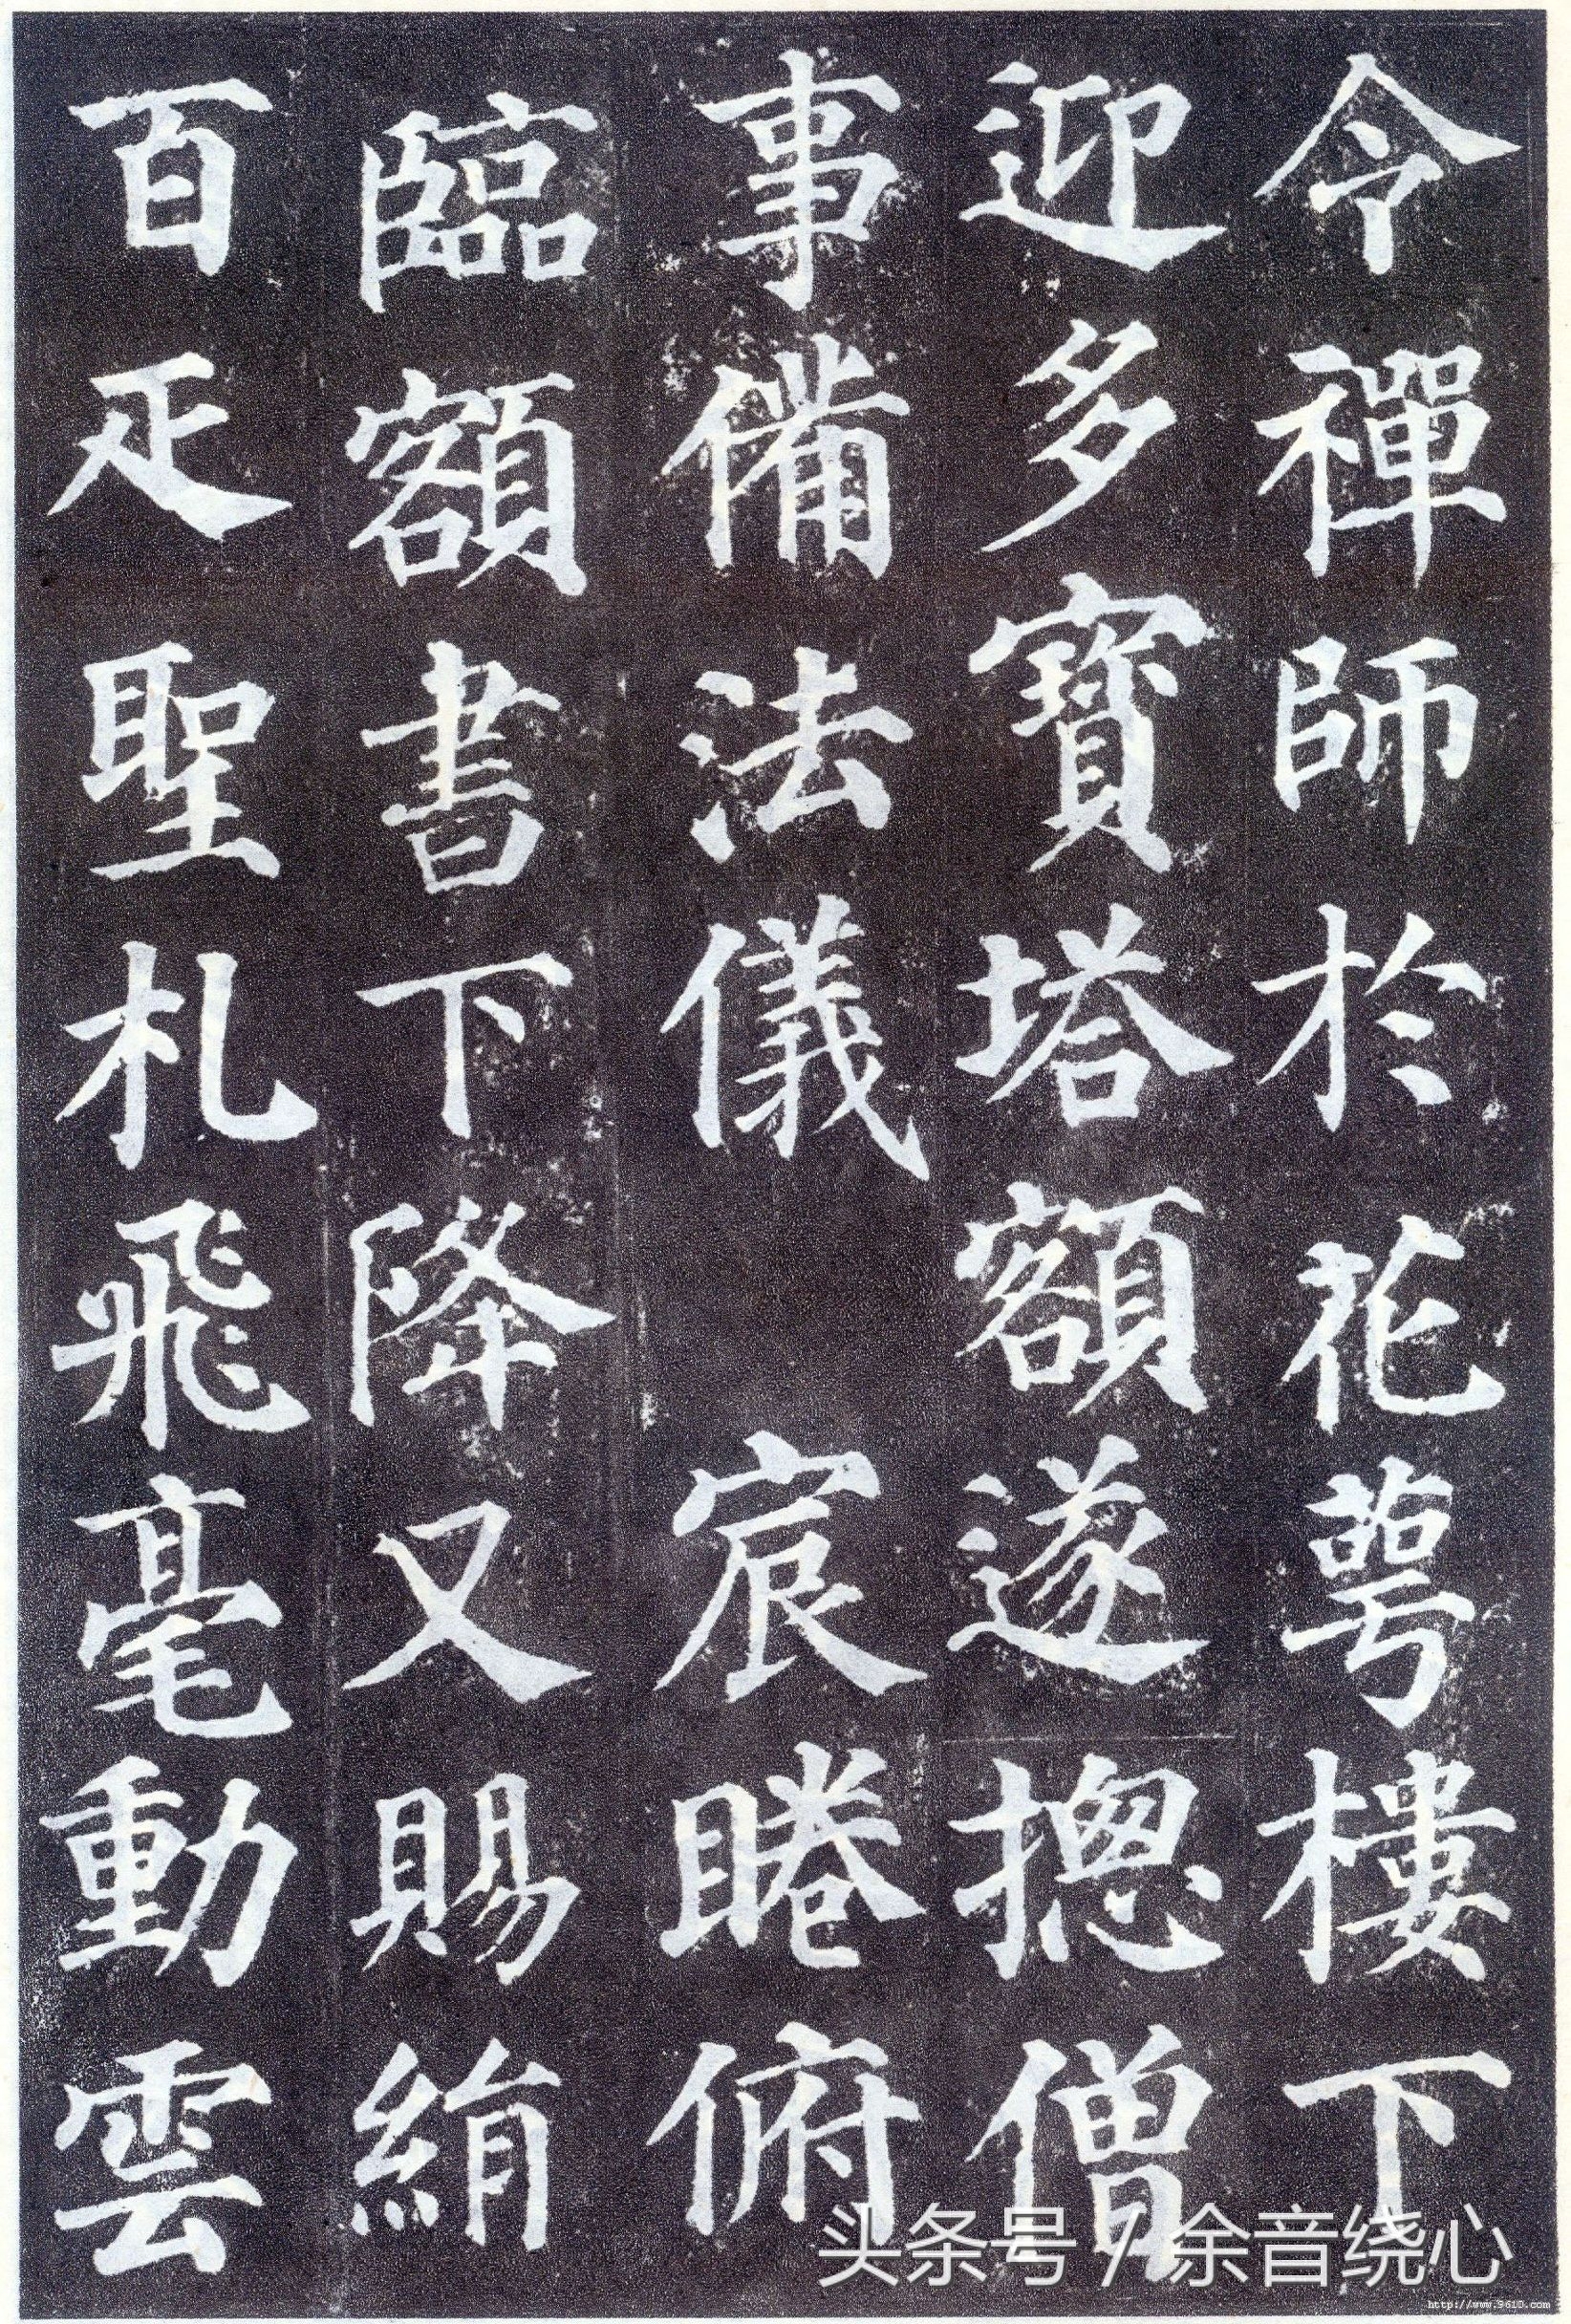 令禪師於花萼樓下
迎多寶塔額遂揔僧
事備法儀 宸睠俯
臨額書下降又賜絹
百疋聖札飛毫動雲
头条号 / 余音绕心
http://www.9610.com